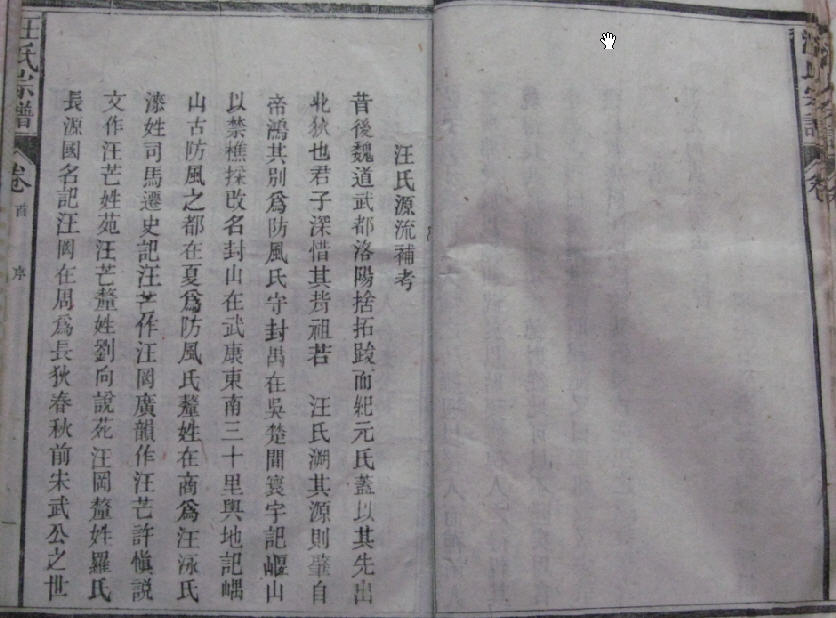 汪氏源流補考
昔後魏道武都洛陽捨拓跋而紀元氏蓋以其先出
北狄也君子深惜其背祖若 汪氏溯其源則肇自
帝鴻其別爲防風氏守封禺在吳楚間寰宇記嵕山
以禁樵採改名封山在武康東南三十里輿地記嵎
山古防風之都在夏爲防風氏釐姓在商爲汪洓氏
漆姓司馬遷史記汪芒作汪罔廣韻作汪芒許愼說
文作汪芒姓苑汪芒釐姓劉向說苑汪罔釐姓羅氏
長源國名記汪罔在周爲長狄春秋前宋武公之世
汪氏宗譜
卷首
序
汪氏宗譜
卷